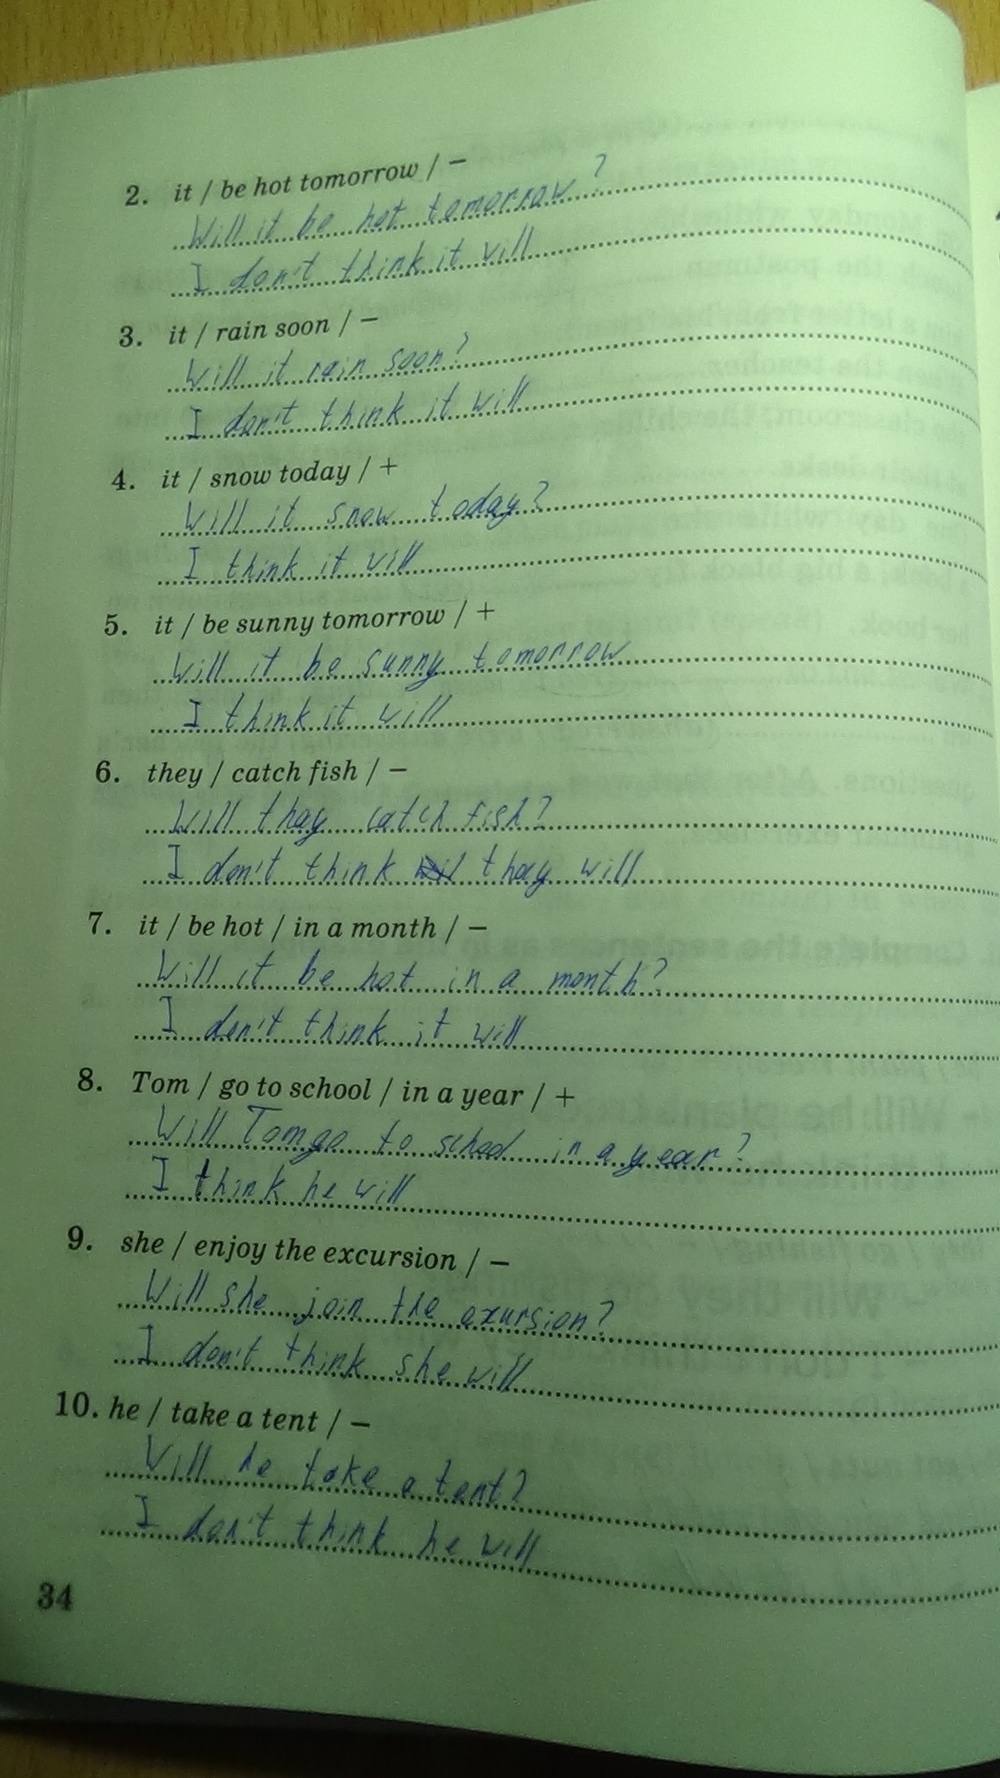 2. it / be hot tomorrow / –
Will it be hot tomorrow?
I don't think it vill
3. it / rain soon / –
Will it rain soon?
I don't think it will
4. it / snow today / +
Will it snow today?
I think it vill
5. it / be sunny tomorrow / +
Will it be sunny tomorrow
I think it vill
6. they / catch fish / –
Will thay catch fish?
I don't think thay will
7. it / be hot / in a month / –
Will it be hot in a month?
I don't think it will
8. Tom / go to school / in a year / +
Will Tom go to school in a year?
I think he will
9. she / enjoy the excursion / –
Will she join the exursion?
I don't think she will
10. he / take a tent / –
Will he take a tent?
I don't think he will
34